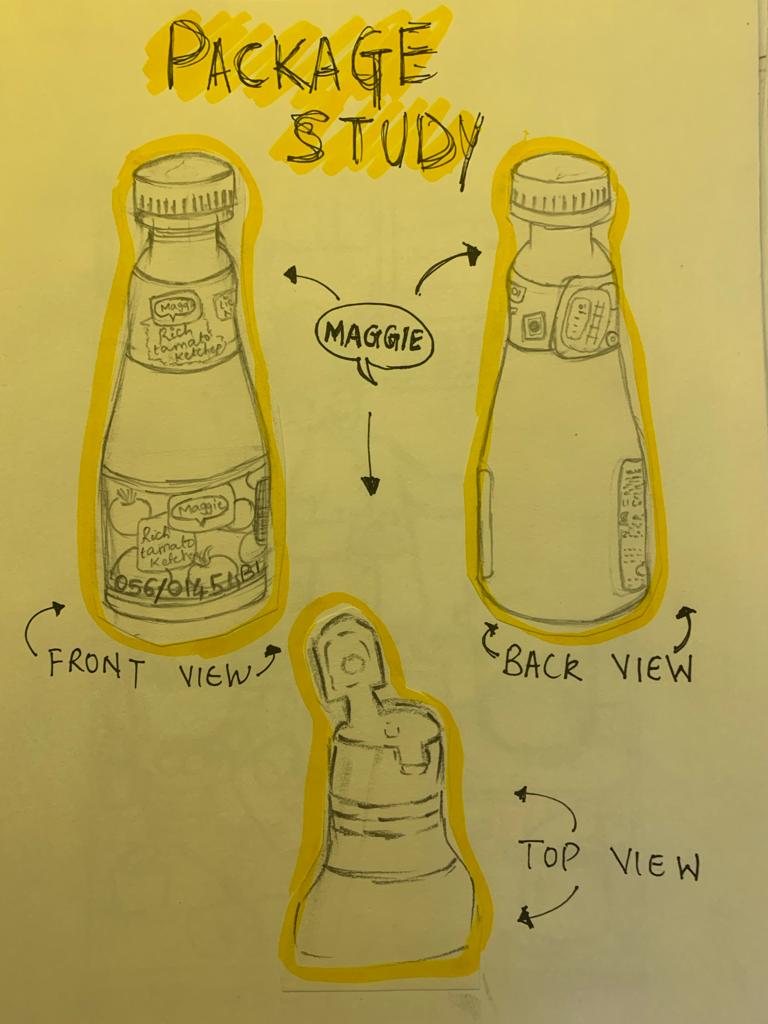 PACKAGE
STUDY
MAGGIE
Maggi
Rich
tamato
Ketchep
Maggie
Rich
tamato
Ketchep
056/01454B1
FRONT VIEW
BACK VIEW
TOP VIEW